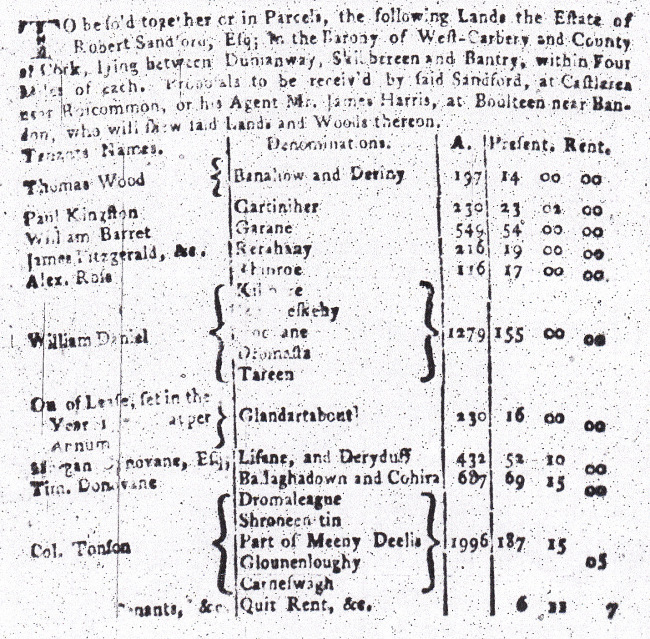 TO be sold together or in Parcels, the following Lands the Estate of
Robert Sandford, Esq; in the Barony of West-Carbery and County
of Cork, lying between Dunmanway, Skilbereen and Bantry, within Four
Miles of each. Proposals to be receiv'd by said Sandford, at Castlerea
near Roscommon, or his Agent Mr. James Harris, at Boulteen near Ban-
don, who will shew said Lands and Woods thereon.
Tenants Names. Denominations. A. Present. Rent.
Thomas Wood { Banahow and Deriny 197 14 00 00
Paul Kingston Gartiniher 230 23 02 00
William Barret Garane 549 54 00 00
James Fitzgerald, &c. 216 19 00 00
Alex. Rose 116 17 00 00
William Daniel {
Dromasta } 1279 155 00 00
Tareen
Out of Lease, set in the
Year at per } Glandartabouel 230 16 00 00
Annum
Morgan Donovane, Esq; Lisane, and Deryduff 432 52 10 00
Tim. Donovane Ballaghadown and Cohira 687 69 15 00
Dromaleague
Shroneen tin
Col. Tonson { Part of Meeny Deelis } 1996 187 15 05
Glounenloughy
Carneswagh
Tenants, &c. Quit Rent, &c. 6 11 7